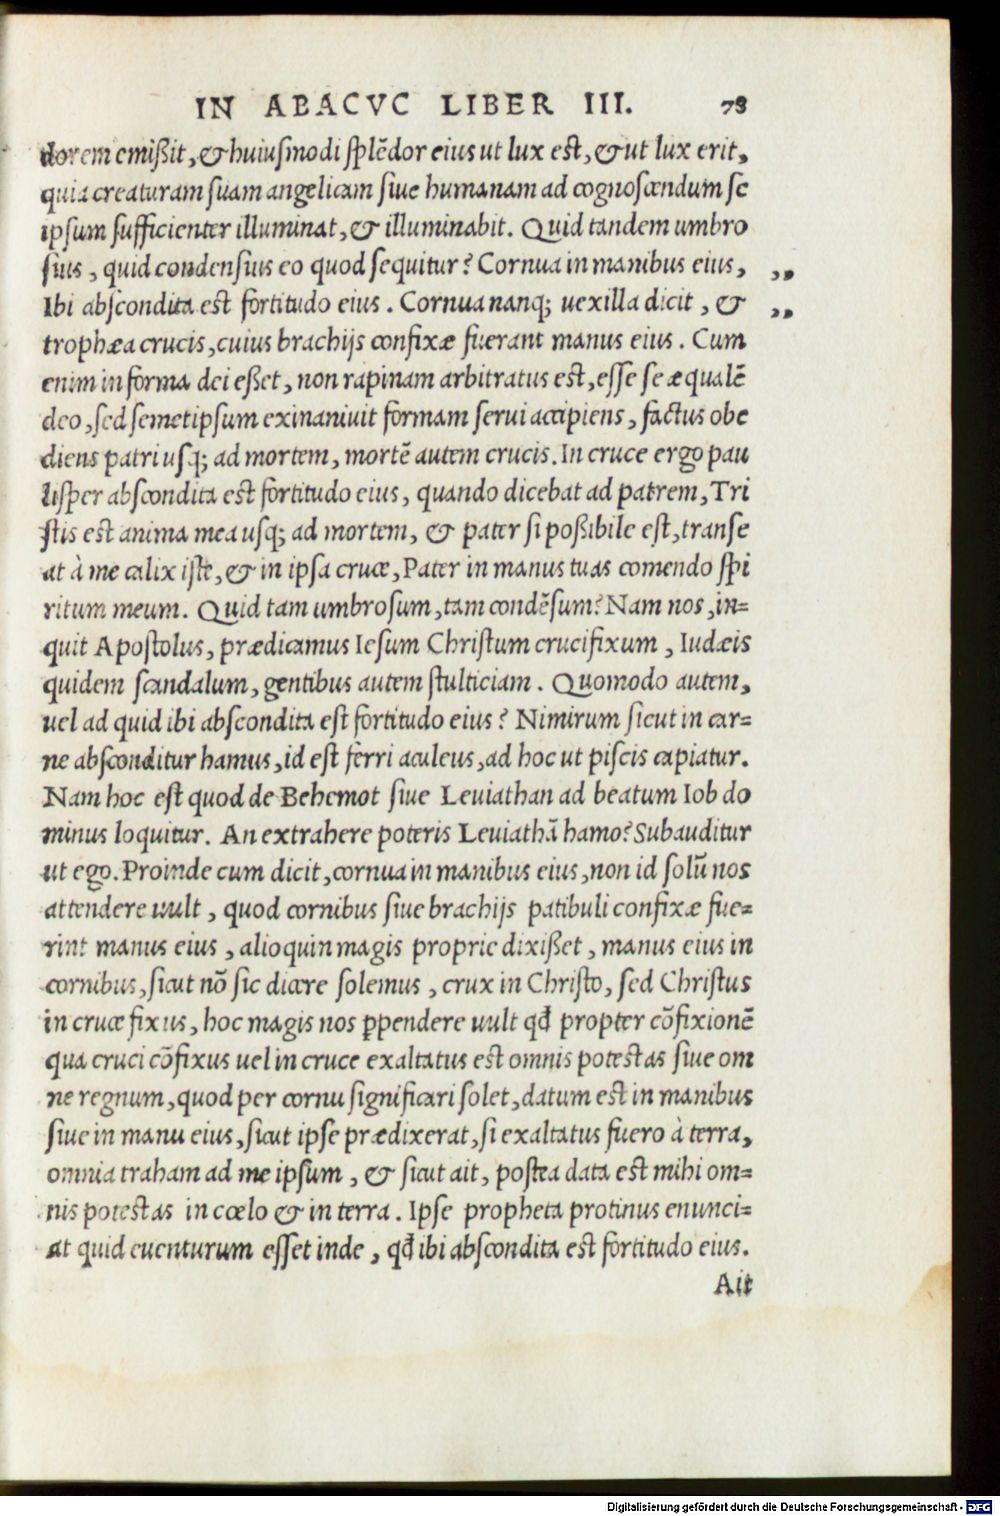 IN ABACVC LIBER III. 78
dorem emißit, & huiusmodi splẽdor eius ut lux est, & ut lux erit,
quia creaturam suam angelicam siue humanam ad cognoscendum se
ipsum sufficienter illuminat, & illuminabit. Quid tandem umbro
sius, quid condensius eo quod sequitur? Cornua in manibus eius, ,,
Ibi abscondita est fortitudo eius. Cornua nanq; uexilla dicit, & ,,
trophæa crucis, cuius brachijs confixæ fuerant manus eius. Cum
enim in forma dei eßet, non rapinam arbitratus est, esse se æqualẽ
deo, sed semetipsum exinaniuit formam serui accipiens, factus obe
diens patri usq; ad mortem, mortẽ autem crucis. In cruce ergo pau
lisper abscondita est fortitudo eius, quando dicebat ad patrem, Tri
stis est anima mea usq; ad mortem, & pater si poßibile est, transe
at à me calix iste, & in ipsa cruce, Pater in manus tuas comendo spi
ritum meum. Quid tam umbrosum, tam condẽsum? Nam nos, in=
quit Apostolus, prædicamus Iesum Christum crucifixum, Iudæis
quidem scandalum, gentibus autem stulticiam. Quomodo autem,
uel ad quid ibi abscondita est fortitudo eius? Nimirum sicut in car=
ne absconditur hamus, id est ferri aculeus, ad hoc ut piscis capiatur.
Nam hoc est quod de Behemot siue Leuiathan ad beatum Iob do
minus loquitur. An extrahere poteris Leuiathã hamo? Subauditur
ut ego. Proinde cum dicit, cornua in manibus eius, non id solũ nos
attendere uult, quod cornibus siue brachijs patibuli confixæ fue=
rint manus eius, alioquin magis proprie dixißet, manus eius in
cornibus, sicut nõ sic dicere solemus, crux in Christo, sed Christus
in cruce fixus, hoc magis nos ꝑpendere uult qđ propter cõfixionẽ
qua cruci cõfixus uel in cruce exaltatus est omnis potestas siue om
ne regnum, quod per cornu significari solet, datum est in manibus
siue in manu eius, sicut ipse prædixerat, si exaltatus fuero à terra,
omnia traham ad me ipsum, & sicut ait, postea data est mihi om=
nis potestas in cœlo & in terra. Ipse propheta protinus enunci=
at quid euenturum esset inde, qđ ibi abscondita est fortitudo eius.
Ait
Digitalisierung gefördert durch die Deutsche Forschungsgemeinschaft - DFG